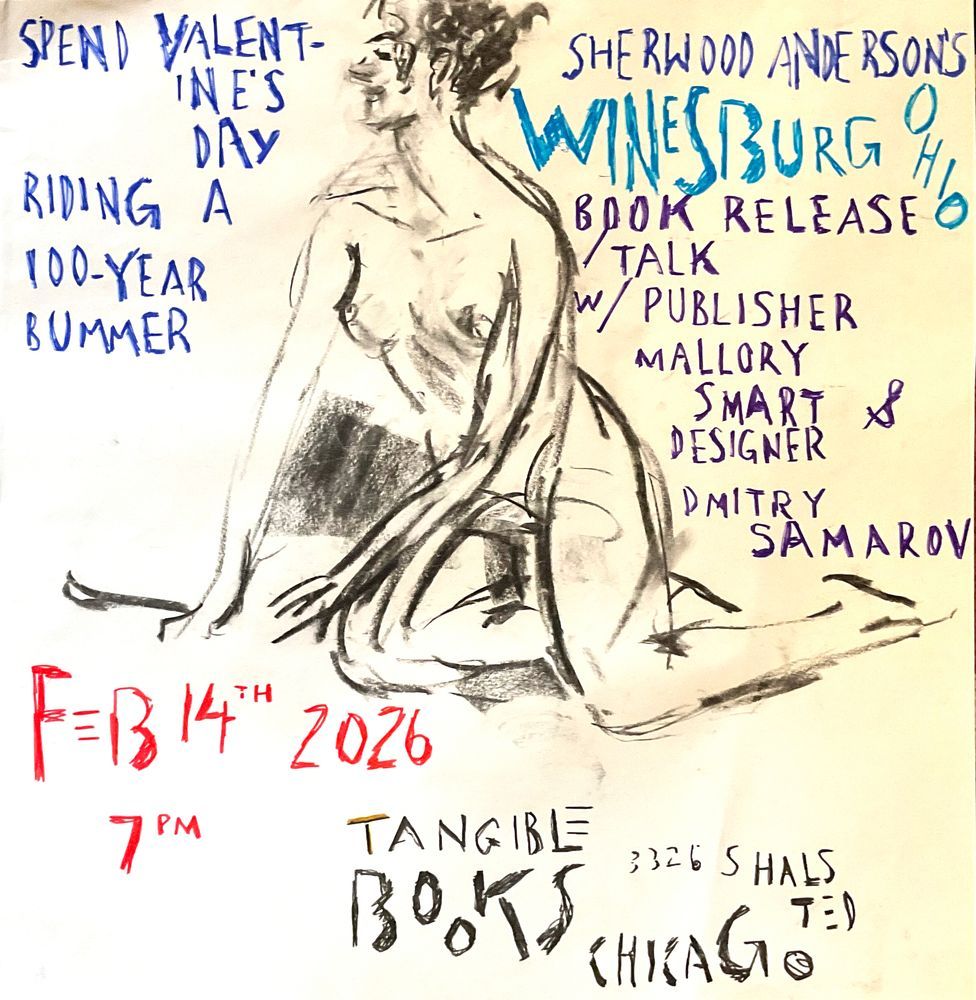 SPEND VALENT-
INE'S
DAY
RIDING A
100-YEAR
BUMMER
SHERWOOD ANDERSON'S
WINESBURG OHIO
BOOK RELEASE
/TALK
W/ PUBLISHER
MALLORY
SMART &
DESIGNER
DMITRY
SAMAROV
FEB 14TH 2026
7PM
TANGIBLE
BOOKS
3326 S HALS
TED
CHICAGO